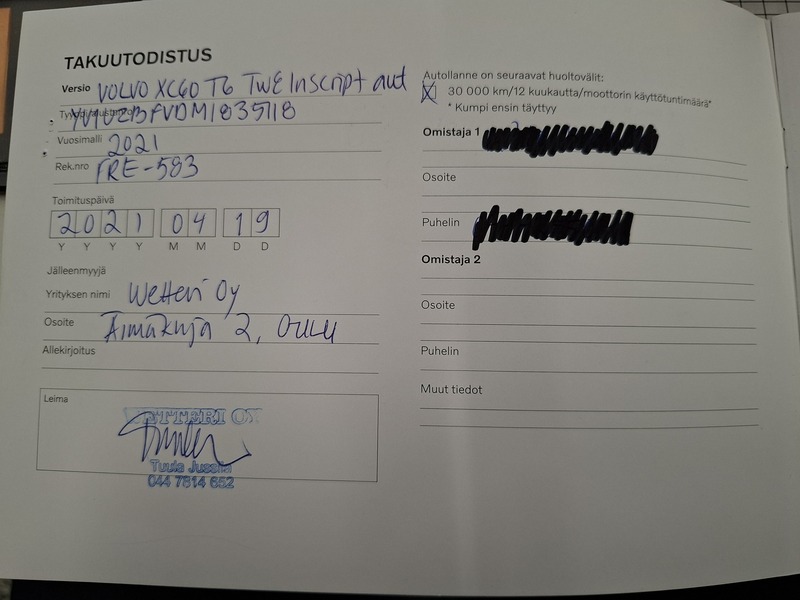 TAKUUTODISTUS
Versio VOLVO XC60 T6 TwE Inscript aut
YV1UZBFVDM1835718
Vuosimalli 2021
Rek.nro FRE-583
Toimituspäivä
2021 04 19
Y Y Y Y M M D D
Jälleenmyyjä
Yrityksen nimi Wetteri Oy
Osoite Äimäkuja 2, Oulu
Allekirjoitus
Leima
WETTERI OY
044 7814 652
Autollanne on seuraavat huoltovälit:
30 000 km/12 kuukautta/moottorin käyttötuntimäärä*
* Kumpi ensin täyttyy
Omistaja 1
Osoite
Puhelin
Omistaja 2
Osoite
Puhelin
Muut tiedot